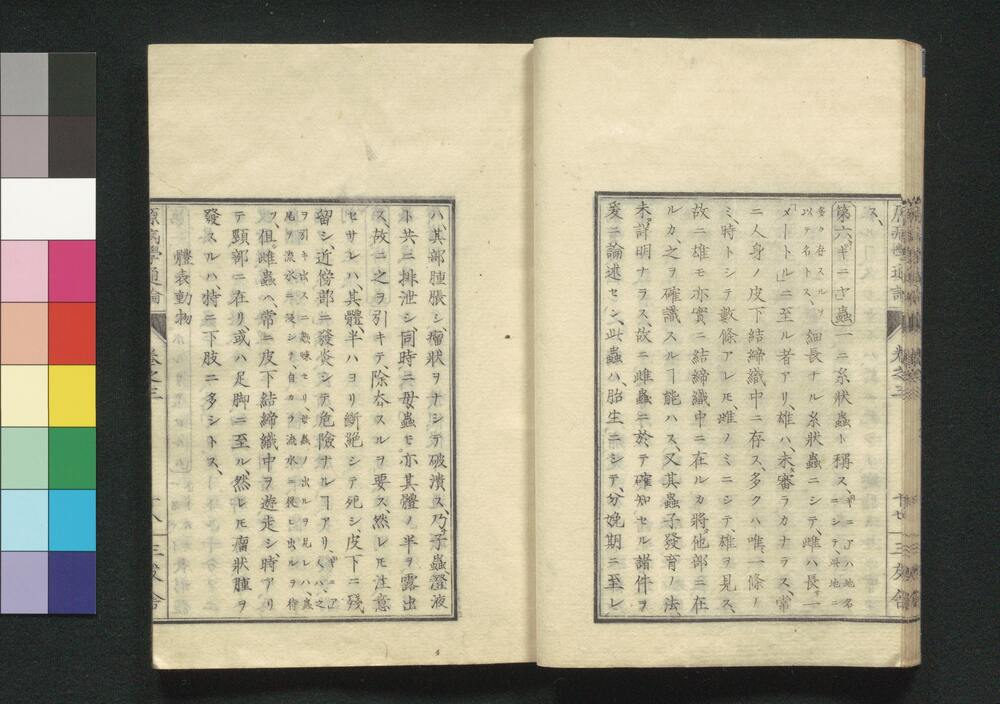 ス、
第六「ギニア」蟲 一ニ糸狀蟲ト稱ス、「ギニア」ハ地名ニシテ、此地ニ
多ク存スルヲ以テ名トス、細長ナル糸狀蟲ニシテ、雌ハ長一
「メートル」ニ至ル者アリ、雄ハ、未審ラカナラス、常
ニ人身ノ皮下結締織中ニ存ス、多クハ唯一條ノ
ミ、時トシテ數條アレ𪜈、雌ノミニシテ、雄ヲ見ス、
故ニ雄モ亦實ニ結締織中ニ在ルカ將他部ニ在
ルカ、之ヲ確識スルヿ能ハス、又其蟲子發育ノ法、
未詳明ナラス、故ニ雌蟲ニ於テ確知セル諸件ヲ
爰ニ論述セン、此蟲ハ、胎生ニシテ、分娩期ニ至レ
原病學通論 卷之三 十七 三友舎
ハ其部腫脹シ、瘤狀ヲナシテ破潰ス、乃子蟲澄液
ト共ニ排泄シ、同時ニ母蟲モ亦其體ノ半ヲ露出
ス故ニ之ヲ引キテ、除去スルヲ要ス、然レ𪜈注意
セサレハ、其體半ハヨリ斷絶シテ死シ、皮下ニ殘
留シ、近傍部ニ發炎シテ、危險ナルヿアリ、
ヲ引キ出スニ熟味セリ、
尾ヲ流水ニ浸シテ、自カラ流水ニ從ヒ出ルヲ待
ツ、但雌蟲ハ、常ニ皮下結締織中ヲ遊走シ、時アリ
テ頸部ニ在リ、或ハ足脚ニ至ル、然レ𪜈瘤狀腫ヲ
發スルハ、特ニ下肢ニ多シトス、
體表動物
原病學通論 卷之三 十八 三友舎